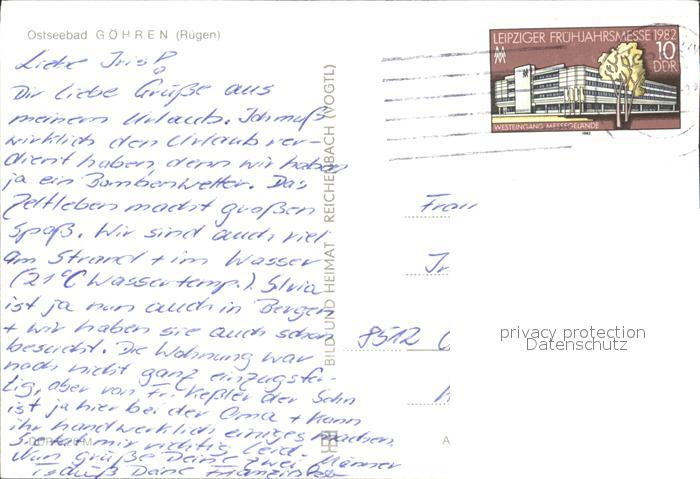 Ostseebad GÖHREN (Rügen)
Liebe Iris!
Dir liebe Grüße aus
meinem Urlaub. Ich muß
wirklich den Urlaub ver-
dient haben, denn wir haben
ja ein Bombenwetter. Das
Zeltleben macht großen
Spaß. Wir sind auch viel
am Strand + im Wasser
(21°C Wassertemp.). Silvia
ist ja nun auch in Bergen
+ wir haben sie auch schon
besucht. Die Wohnung war
noch nicht ganz einzugsfer-
tig, aber von Fr. Keßler der Sohn
ist ja hier bei der Oma + kann
ihr handwerklich einiges machen.
mir richtig Leid.
Nun grüße Deine zwei Männer
Tschüß Deine
BILD UND HEIMAT REICHENBACH (VOGTL)
LEIPZIGER FRÜHJAHRSMESSE 1982
10
DDR
WESTEINGANG MESSEGELÄNDE
1982
Frau
Ir
8512
privacy protection
Datenschutz
A